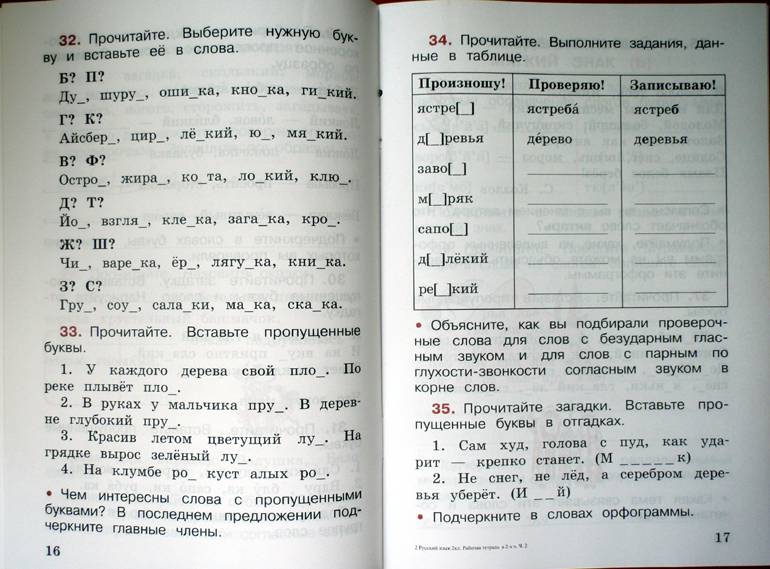 32. Прочитайте. Выберите нужную бук-
ву и вставьте её в слова.
Б? П?
Ду_, шуру_, оши_ка, кно_ка, ги_кий.
Г? К?
Айсбер_, цир_, лё_кий, ю_, мя_кий.
В? Ф?
Остро_, жира_, ко_та, ло_кий, клю_.
Д? Т?
Йо_, взгля_, кле_ка, зага_ка, кро_.
Ж? Ш?
Чи_, варе_ка, ёр_, лягу_ка, кни_ка.
З? С?
Гру_, соу_, сала_ки, ма_ка, ска_ка.
33. Прочитайте. Вставьте пропущенные
буквы.
1. У каждого дерева свой пло_. По
реке плывёт пло_.
2. В руках у мальчика пру_. В дерев-
не глубокий пру_.
3. Красив летом цветущий лу_. На
грядке вырос зелёный лу_.
4. На клумбе ро_ куст алых ро_.
• Чем интересны слова с пропущенными
буквами? В последнем предложении под-
черкните главные члены.
16
34. Прочитайте. Выполните задания, дан-
ные в таблице.
Произношу! Проверяю! Записываю!
ястре[_] ястреба́ ястреб
д[_]ревья де́рево деревья
заво[_]
м[_]ряк
сапо[_]
д[_]лёкий
ре[_]кий
• Объясните, как вы подбирали провероч-
ные слова для слов с безударным глас-
ным звуком и для слов с парным по
глухости-звонкости согласным звуком в
корне слов.
35. Прочитайте загадки. Вставьте про-
пущенные буквы в отгадках.
1. Сам худ, голова с пуд, как уда-
рит — крепко станет. (М _ _ _ _ _ к)
2. Не снег, не лёд, а серебром дере-
вья уберёт. (И _ _ й)
• Подчеркните в словах орфограммы.
2 Русский язык 2кл. Рабочая тетрадь в 2-х ч. Ч. 2
17